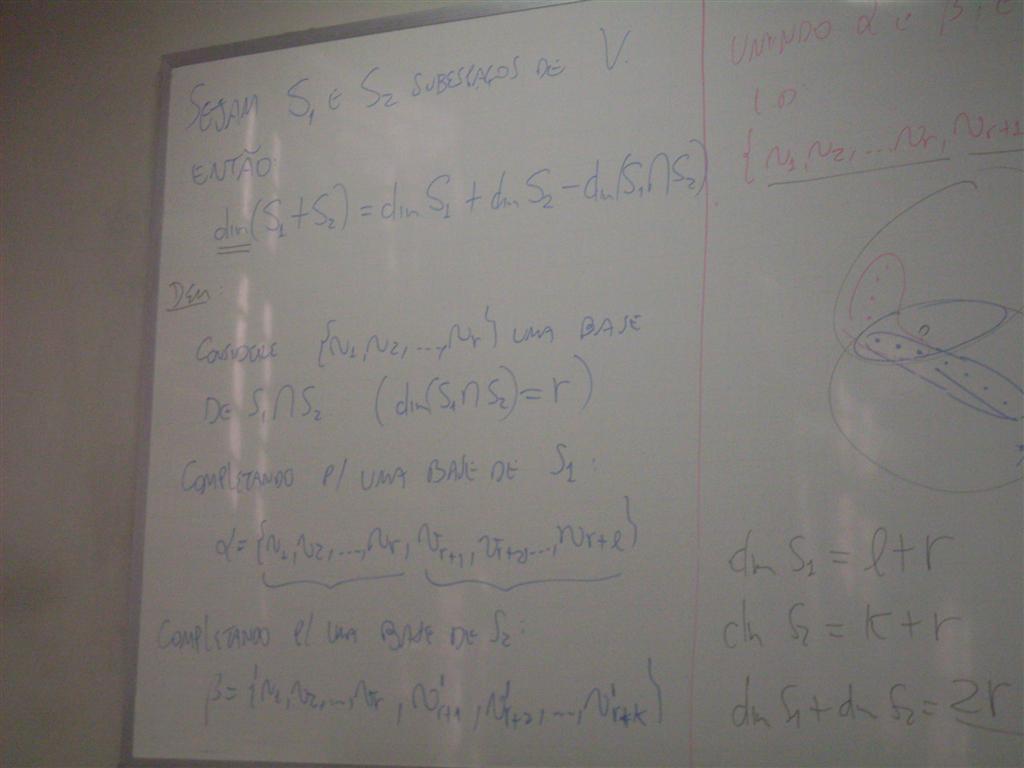 SEJAM S₁ E S₂ SUBESPAÇOS DE V.
ENTÃO:
dim(S₁+S₂) = dim S₁ + dim S₂ - dim(S₁∩S₂)
DEM:
CONSIDERE {v₁,v₂,...,vᵣ} UMA BASE
DE S₁∩S₂ (dim(S₁∩S₂) = r)
COMPLETANDO P/ UMA BASE DE S₁:
α = {v₁,v₂,...,vᵣ, vᵣ₊₁, vᵣ₊₂,..., vᵣ₊ₗ}
COMPLETANDO P/ UMA BASE DE S₂:
β = {v₁,v₂,...,vᵣ, v'ᵣ₊₁, v'ᵣ₊₂,..., v'ᵣ₊ₖ}
UNINDO α E β, E
{v₁,v₂,...vᵣ, vᵣ₊₁
0
dim S₁ = l+r
dim S₂ = k+r
dim S₁ + dim S₂ = 2r